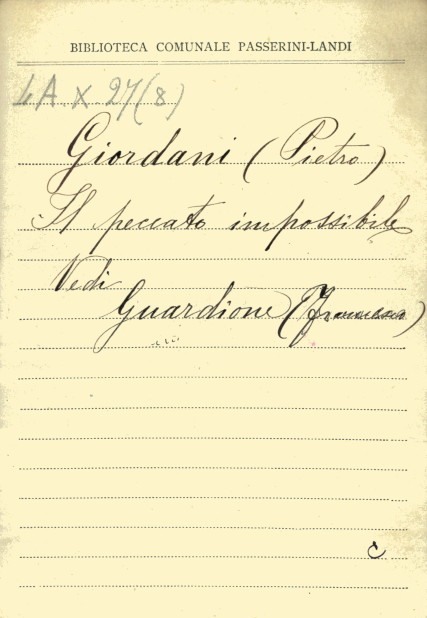 BIBLIOTECA COMUNALE PASSERINI-LANDI
4A X 27(8)
Giordani (Pietro)
Il peccato impossibile
Vedi
Guardione (Francesco)
C